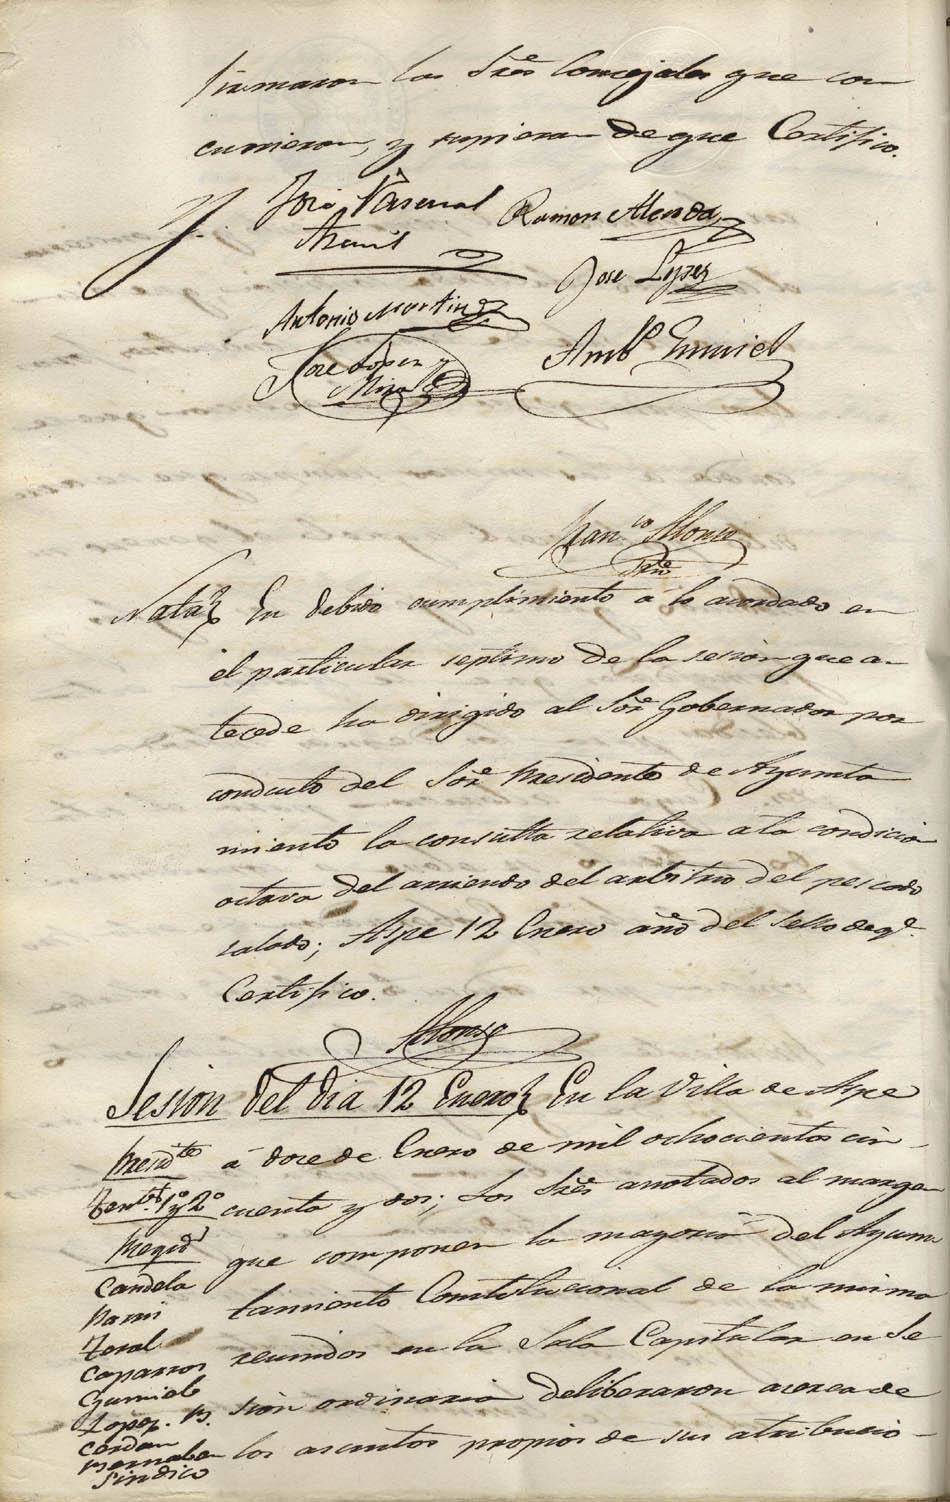 firmaron los Sres Concejales que con
currieron, y supieron de que Certifico.
José Pascual
Ramon Alenda
Jose Lopez
Antonio Martinez
José Lopez y
Mira
Ambº Gumiel
Franco Alonso
Srio
Nota En debido cumplimiento a lo acordado en
el particular septimo de la sesion que an
tecede ha dirigido al Sor Gobernador por
conducto del Sor Presidente de Ayunta
miento la consulta relativa a la condicion
octava del arriendo del arbitrio del pescado
salado; Aspe 12 Enero año del sello de qe
Certifico.
Alonso
Sesion del dia 12 Enero En la Villa de Aspe
á doce de Enero de mil ochocientos cin-
cuenta y dos; los Sres anotados al margen
que componen la mayoria del Ayun
tamiento Constitucional de la misma
reunidos en la Sala Capitular en Se
sion ordinaria deliberaron acerca de
los asuntos propios de sus atribucio-
Presdte
Tentes 1º y 2º
Regid
Candela
Teral
Caparros
Gumiel
Lopez
Cerdan
Bernabeu
Sindico